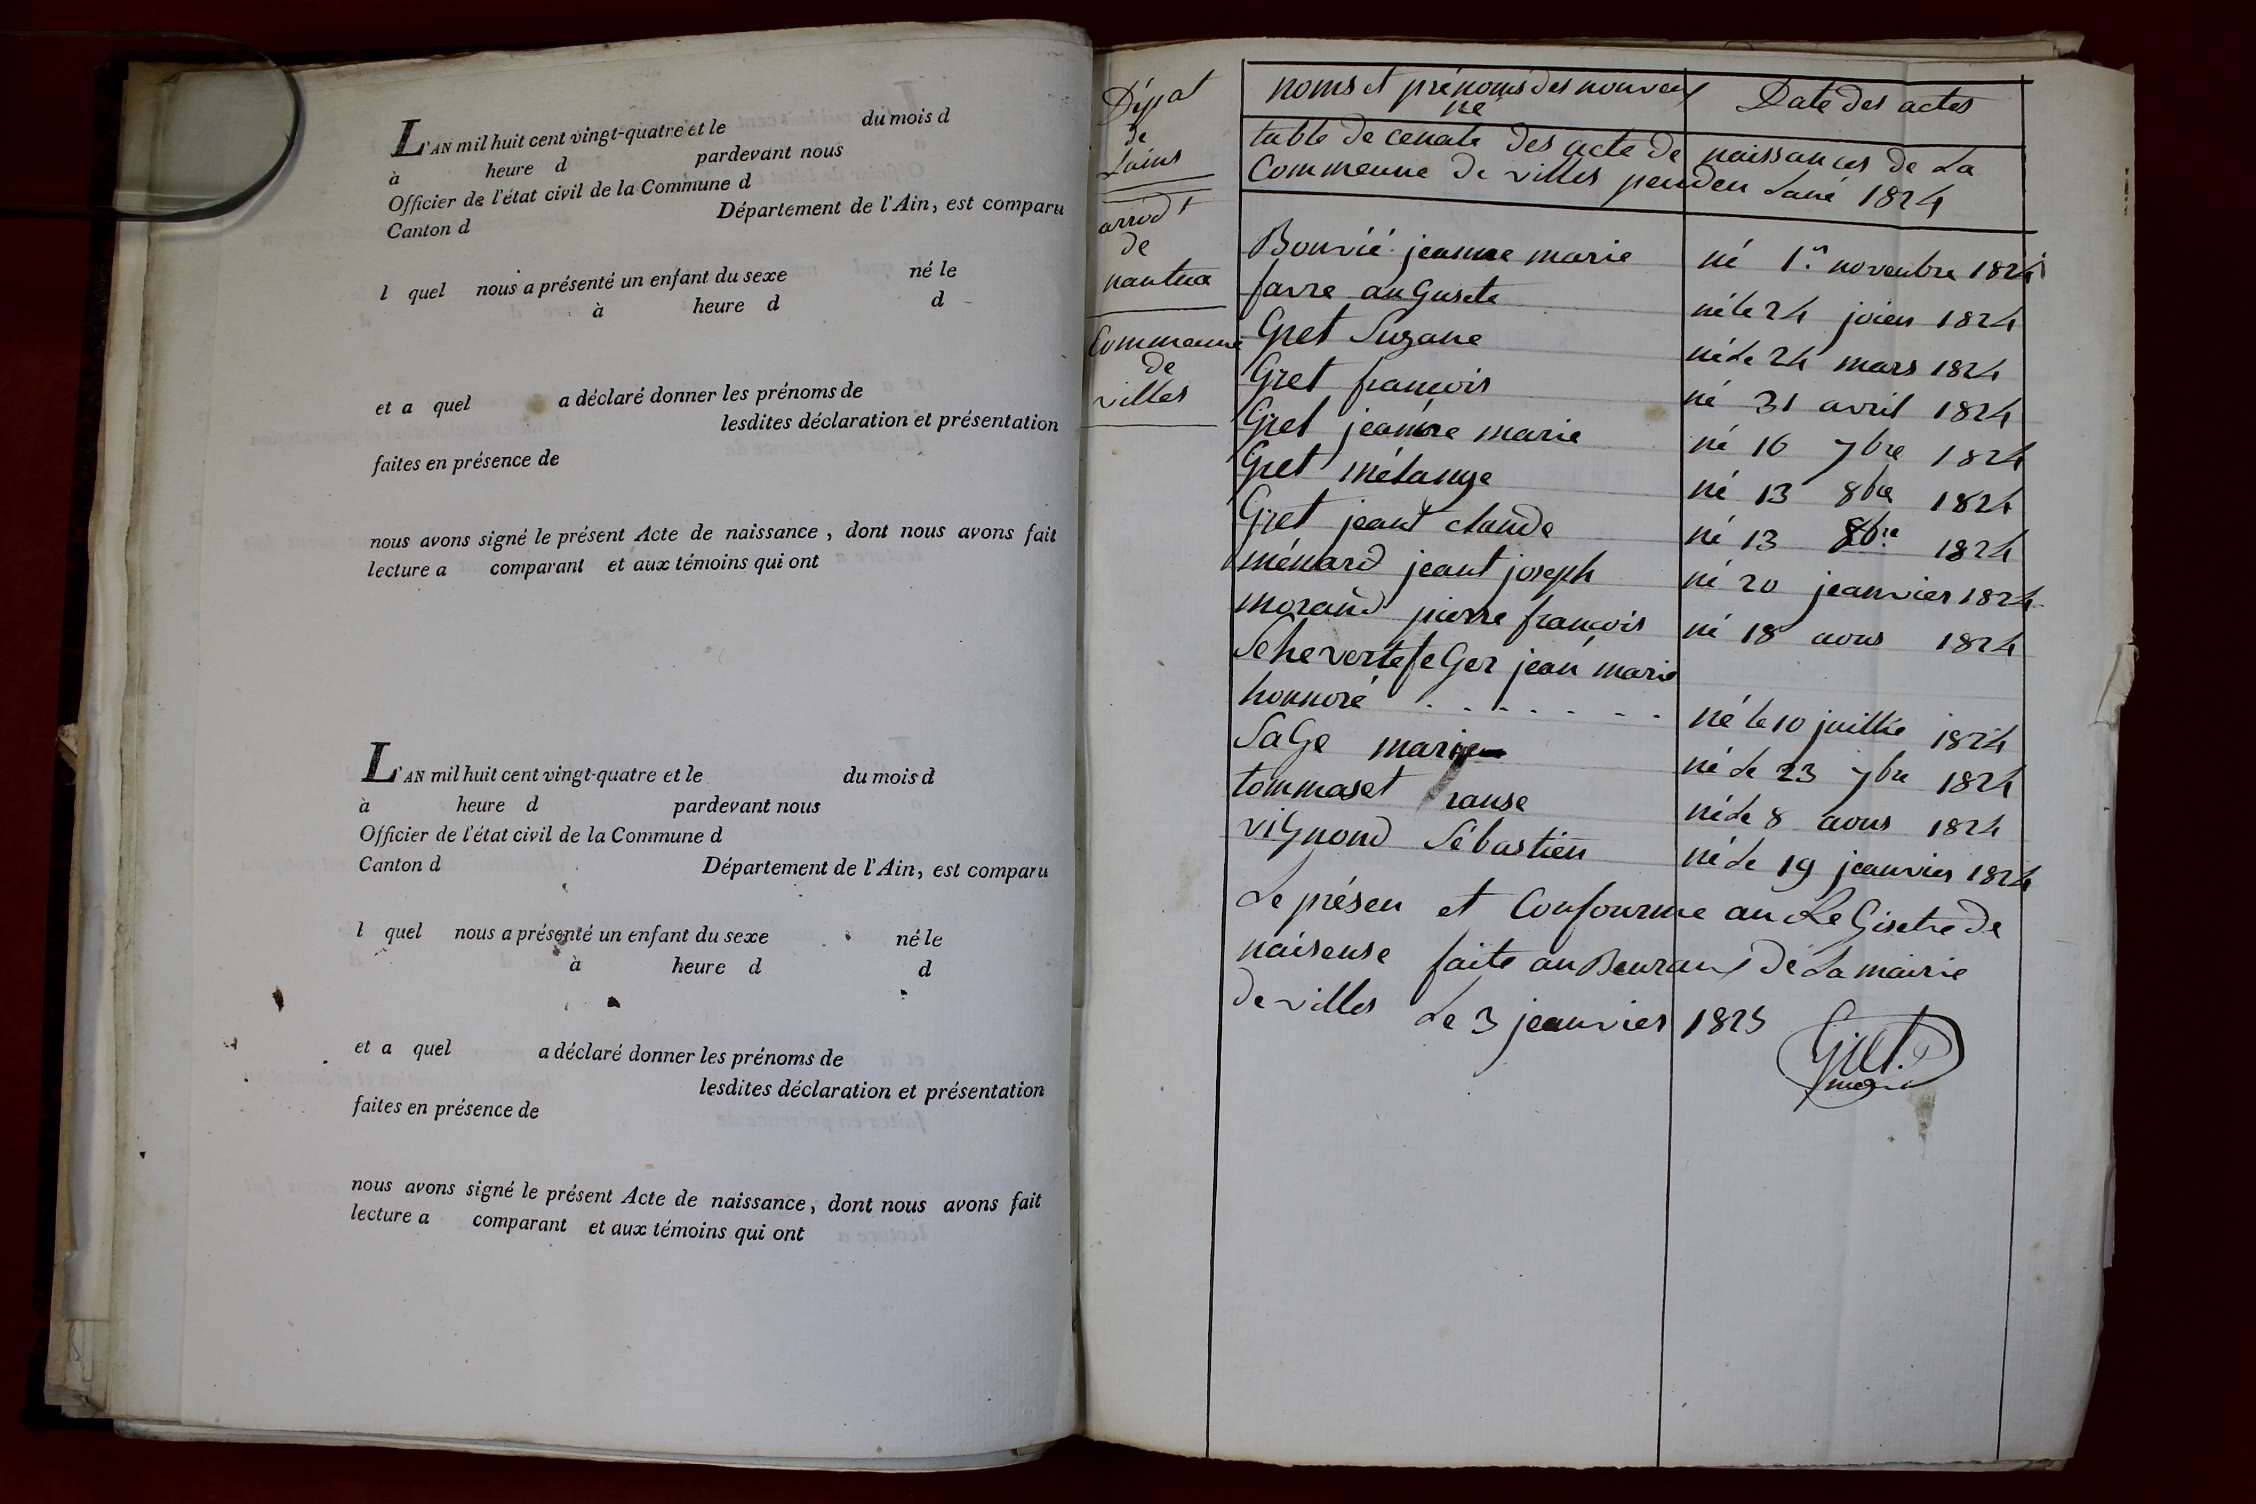 L'AN mil huit cent vingt-quatre et le du mois d
à heure d pardevant nous
Officier de l'état civil de la Commune d
Canton d Département de l'Ain, est comparu
l quel nous a présenté un enfant du sexe né le
à heure d d
et a quel a déclaré donner les prénoms de
lesdites déclaration et présentation
faites en présence de
nous avons signé le présent Acte de naissance, dont nous avons fait
lecture a comparant et aux témoins qui ont
L'AN mil huit cent vingt-quatre et le du mois d
à heure d pardevant nous
Officier de l'état civil de la Commune d
Canton d Département de l'Ain, est comparu
l quel nous a présenté un enfant du sexe né le
à heure d d
et a quel a déclaré donner les prénoms de
lesdites déclaration et présentation
faites en présence de
nous avons signé le présent Acte de naissance, dont nous avons fait
lecture a comparant et aux témoins qui ont
Dépat
de
Lains
arrid t
de
nantua
Commeune
de
villes
noms et prénoms des nouveux
né
Date des actes
table de cenale des acte de naissances de La
Commeune de villes penden Lané 1824
Bouvié jeanne marie né 1er novenbre 1824
favre auGuste né le 24 joien 1824
Gret Suzane né Le 24 mars 1824
Gret francois né 31 avril 1824
Gret jeanne marie né 16 7bre 1824
Gret mélanye né 13 8bre 1824
Gret jeant claude né 13 8bre 1824
ménard jeant joseph né 20 jeanvier 1824
morand pierre francois né 18 aous 1824
SehevertefeGer jean marie
honnoré né le 10 juillié 1824
SaGe marie né Le 23 7bre 1824
tommaset ranse né Le 8 aous 1824
viGnond Sébastien né Le 19 jeanvier 1824
Le présen et Confourme au ReGisetre de
naisense faite au Beuraux dé La mairie
de villes Le 3 jeanvier 1825
Gret